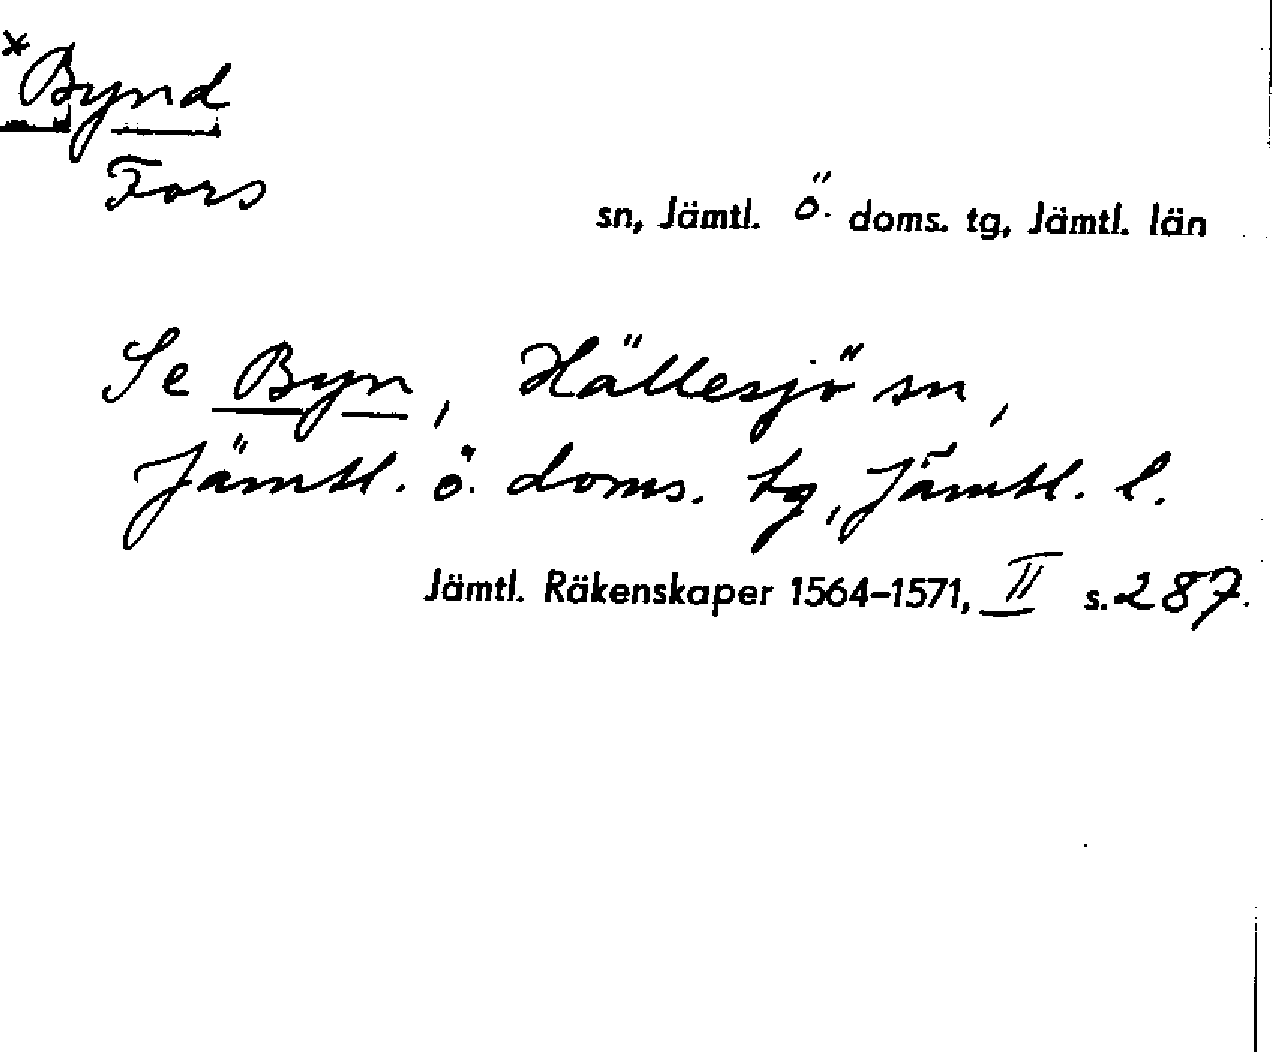 *Bynd
Fors
sn, Jämtl. ö. doms. tg, Jämtl. län
Se Byn, Hällesjö sn,
Jämtl. ö. doms. tg, Jämtl. l.
Jämtl. Räkenskaper 1564–1571, II s. 287.